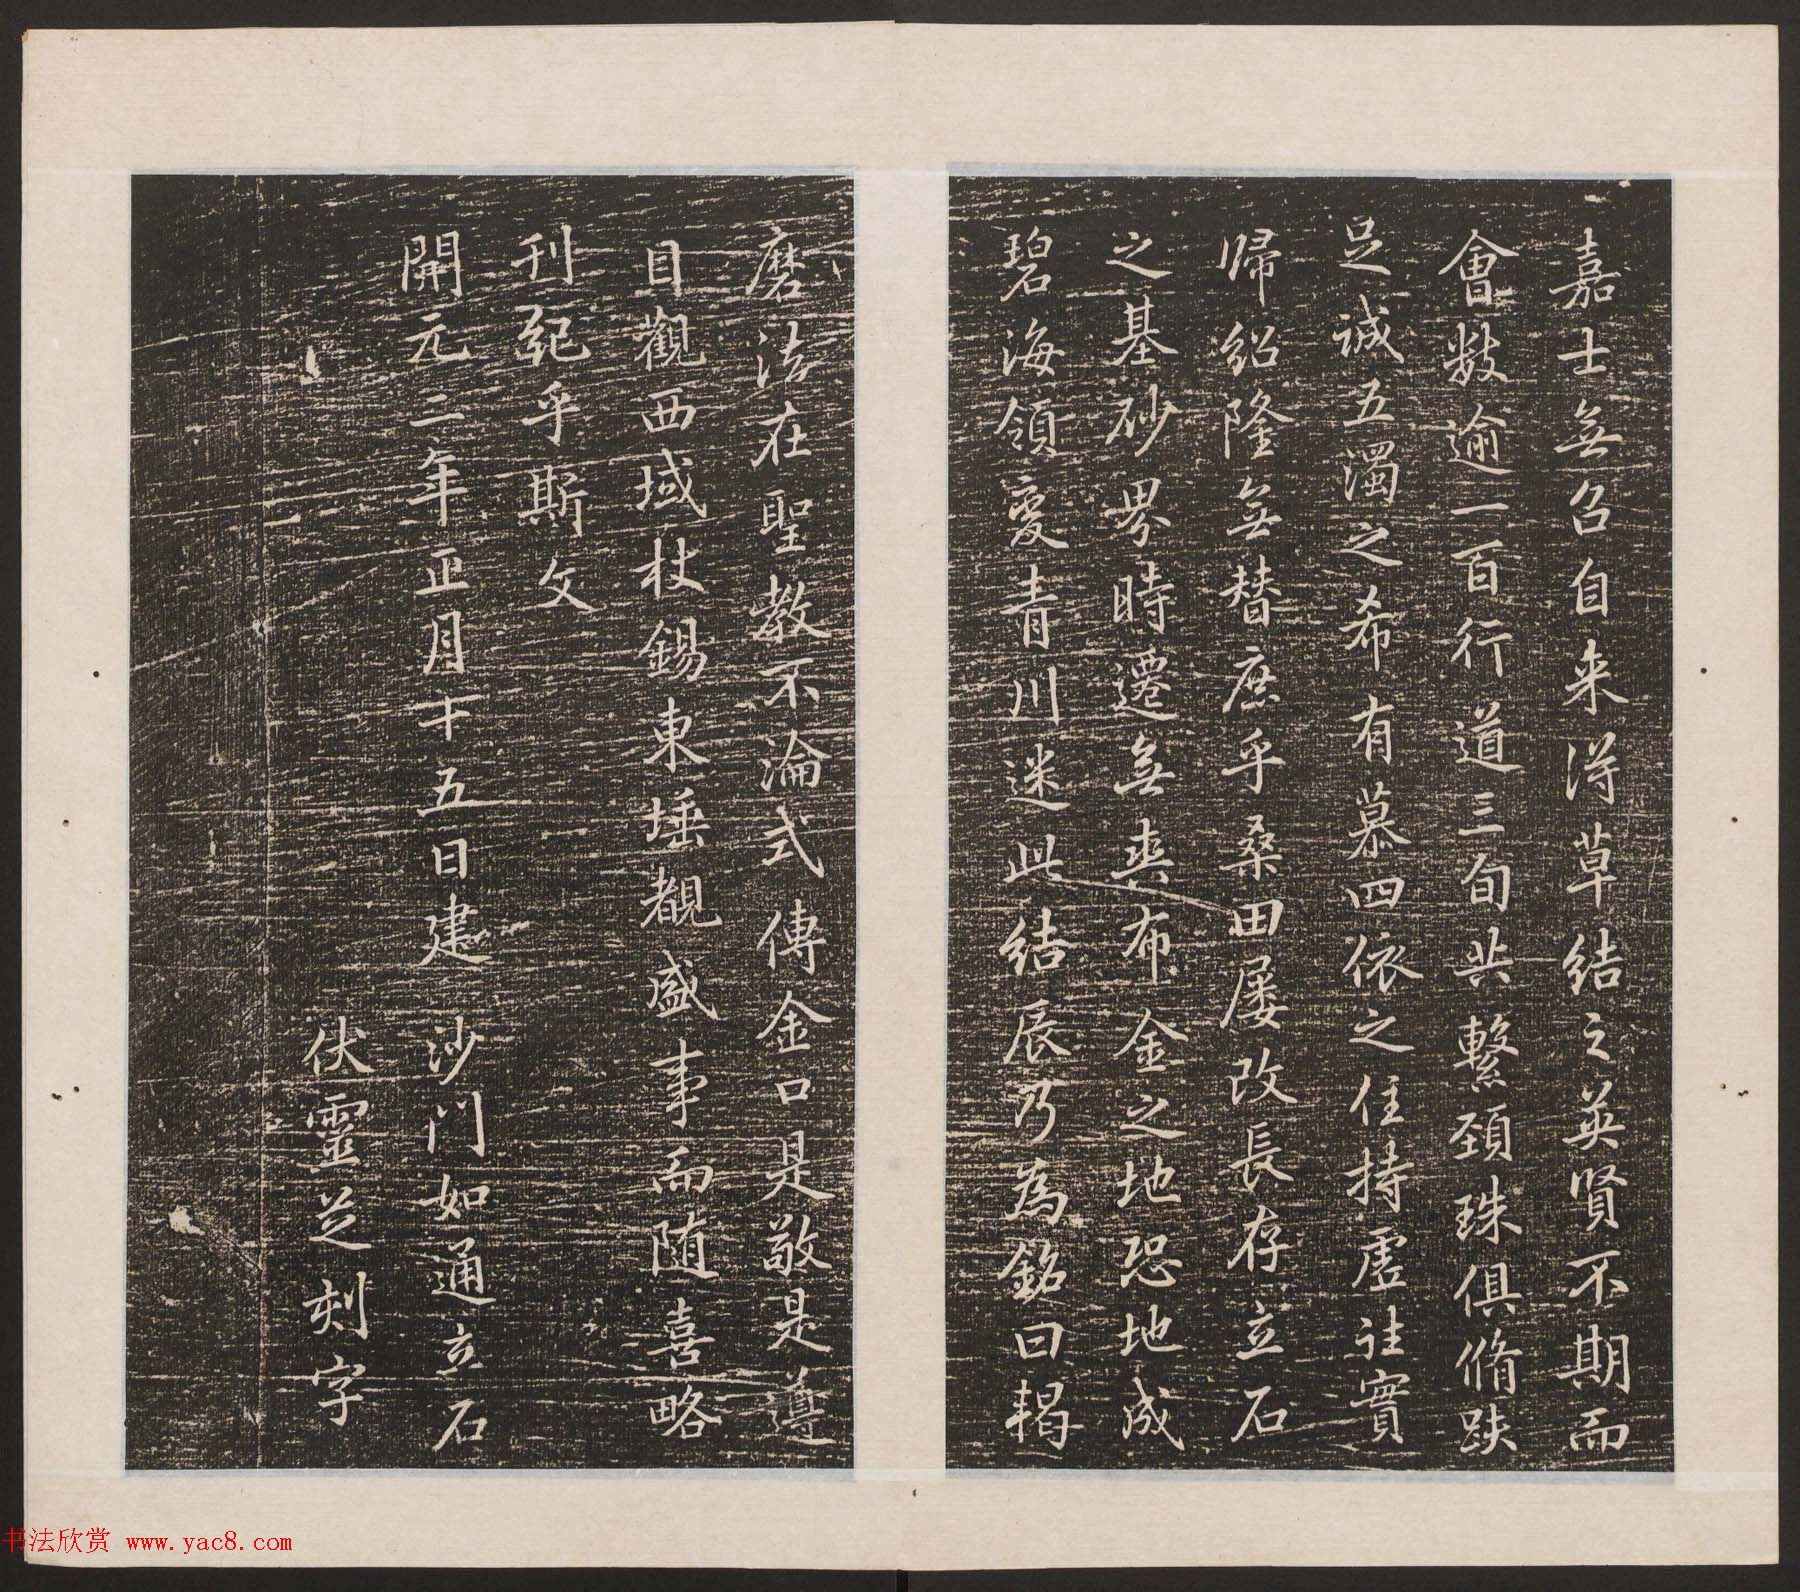 嘉士無召自来得草結之英賢不期而
會數逾一百行道三旬共繫頚珠俱脩趺
足誠五濁之希有慕四依之住持虛往實
歸紹隆無替庶乎桑田屡改長存立石
之基砂界時遷無爽布金之地恐地成
碧海領變青川迷此結辰乃為銘曰羯
磨法在聖教不淪式傳金口是敬是遵
目觀西域杖錫東埵覩盛事而随喜略
刊紀乎斯文
開元二年正月十五日建 沙門如通立石
伏靈芝刻字
书法欣赏 www.yac8.com